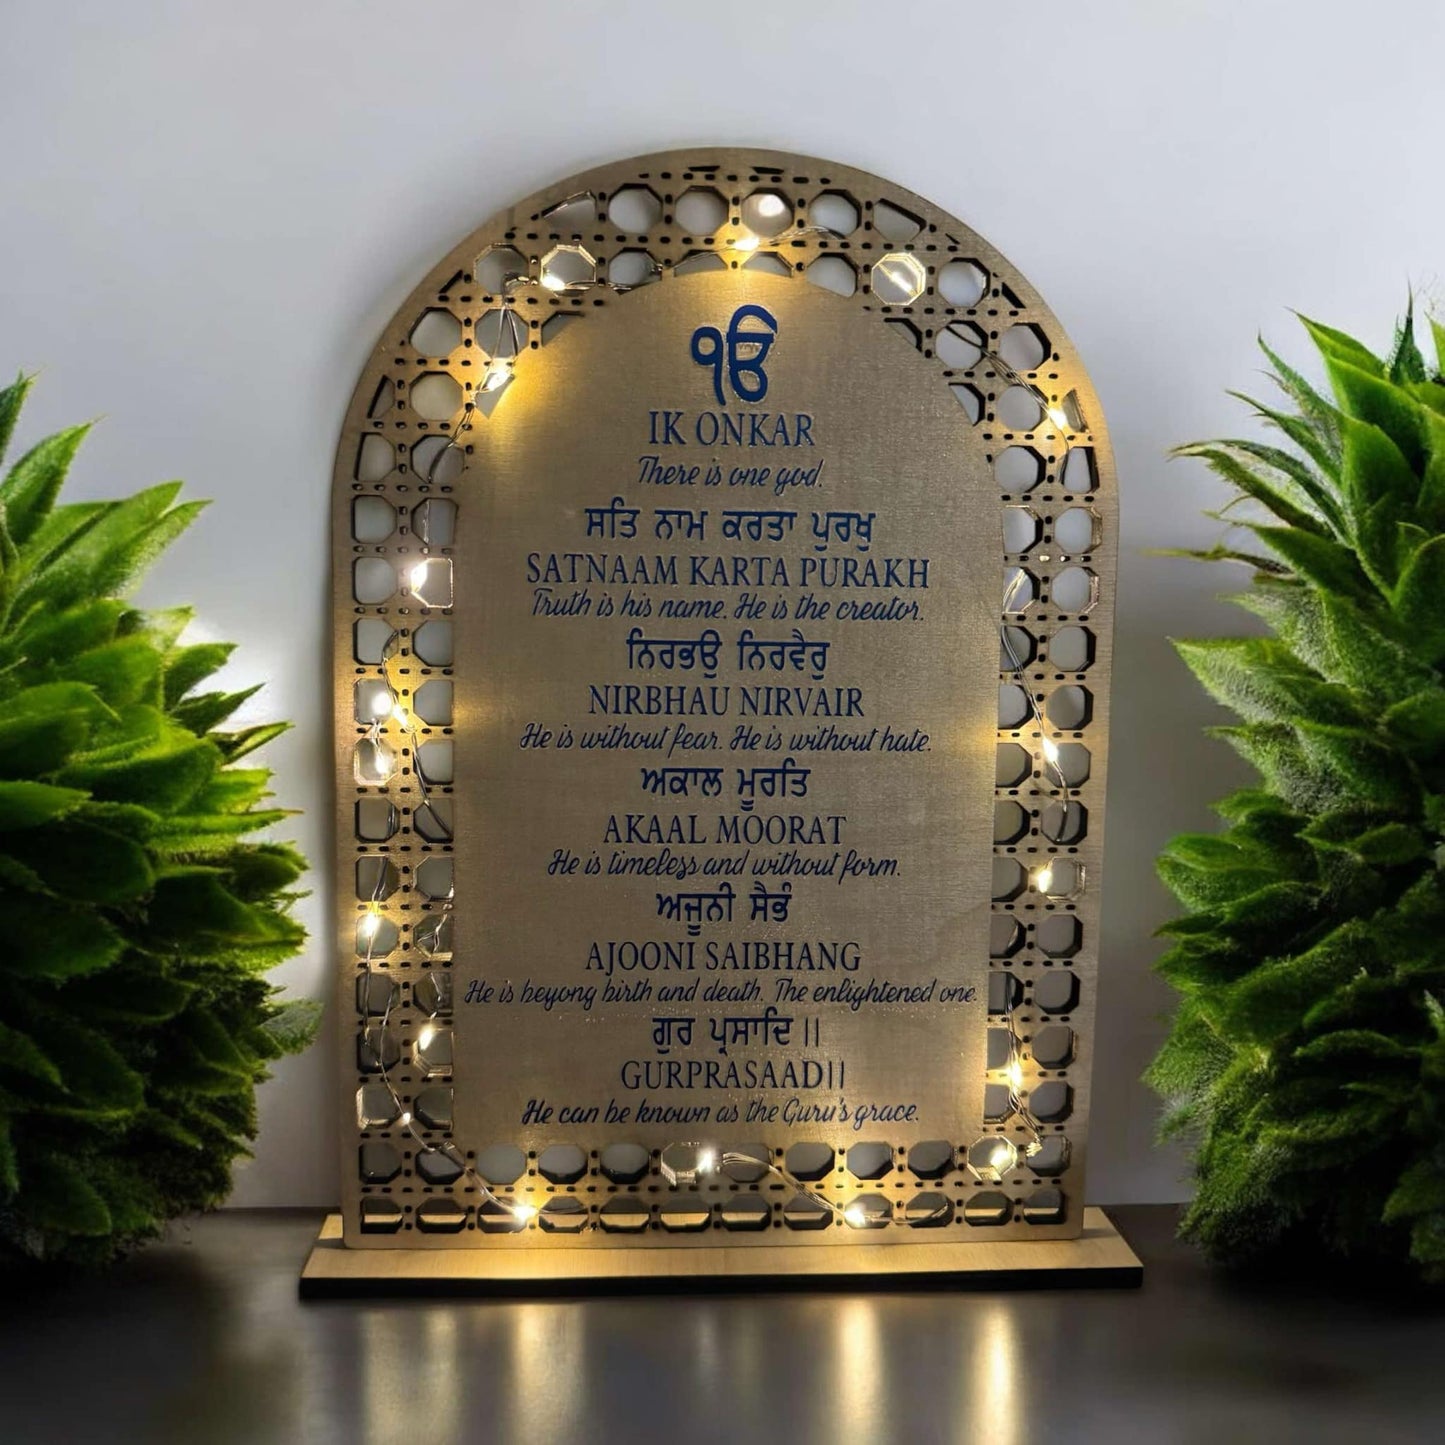 ੴ
IK ONKAR
There is one god.
ਸਤਿ ਨਾਮ ਕਰਤਾ ਪੁਰਖੁ
SATNAAM KARTA PURAKH
Truth is his name. He is the creator.
ਨਿਰਭਉ ਨਿਰਵੈਰੁ
NIRBHAU NIRVAIR
He is without fear. He is without hate.
ਅਕਾਲ ਮੂਰਤਿ
AKAAL MOORAT
He is timeless and without form.
ਅਜੂਨੀ ਸੈਭੰ
AJOONI SAIBHANG
He is beyong birth and death. The enlightened one.
ਗੁਰ ਪ੍ਰਸਾਦਿ ||
GURPRASAAD||
He can be known as the Guru's grace.